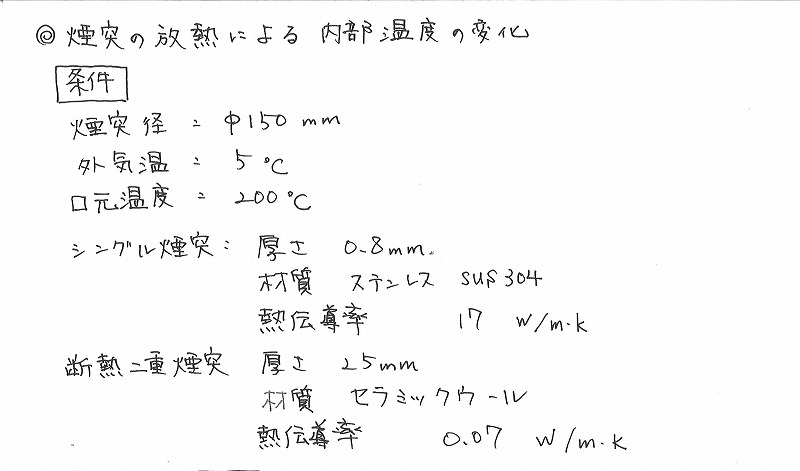 ◎ 煙突の放熱による 内部温度の変化
条件
煙突径 = φ150 mm
外気温 = 5℃
口元温度 = 200℃
シングル煙突: 厚さ 0.8mm.
材質 ステンレス SUS304
熱伝導率 17 W/m・k
断熱二重煙突 厚さ 25mm
材質 セラミックウール
熱伝導率 0.07 W/m・k